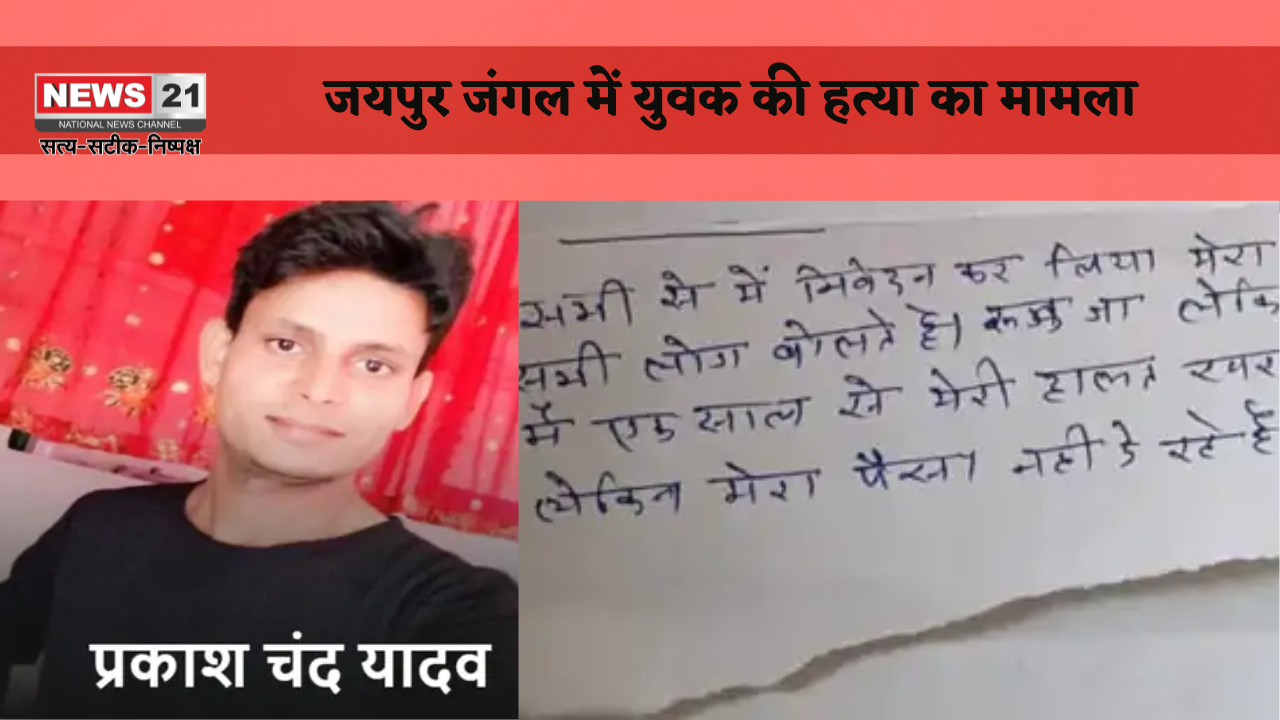 जयपुर जंगल में युवक की हत्या का मामला
NEWS 21
NATIONAL NEWS CHANNEL
सत्य-सटीक-निष्पक्ष
सभी से में निवेदन कर लिया मेरा
सभी लोग बोलते है। जा
में एक साल से मेरी हालत
लेकिन मेरा पैसा नही दे रहे है
प्रकाश चंद यादव